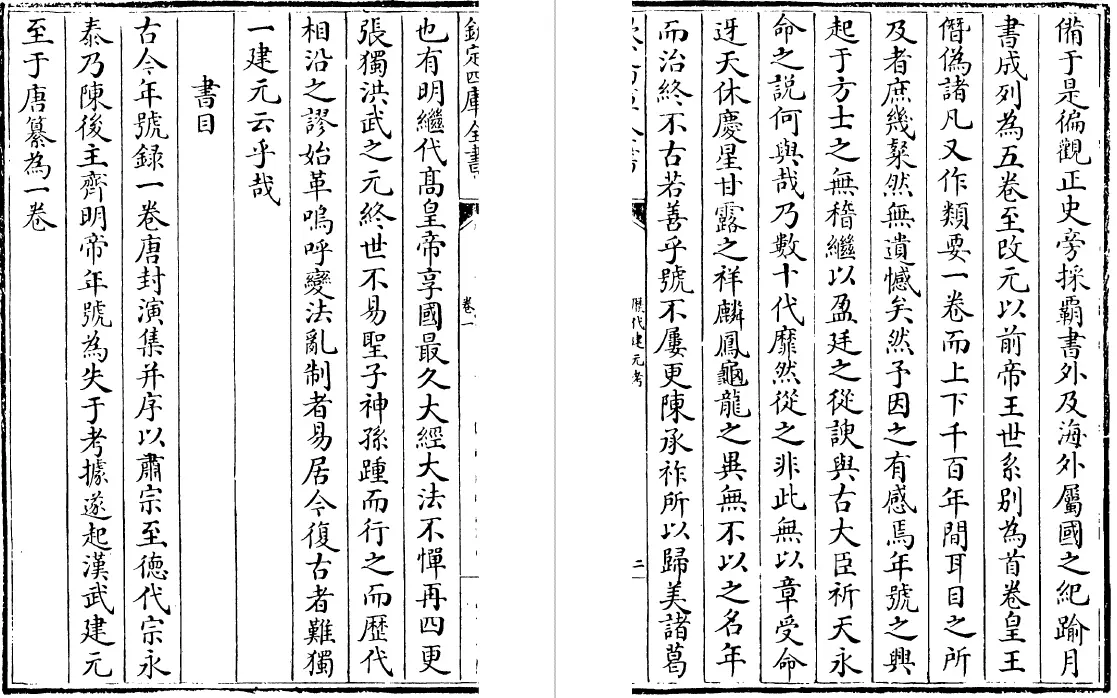 備于是徧觀正史旁採霸書外及海外屬國之紀踰月
書成列為五卷至改元以前帝王世系别為首卷皇王
僭偽諸凡又作類要一卷而上下千百年間耳目之所
及者庶幾粲然無遺憾矣然予因之有感焉年號之興
起于方士之無稽繼以盈廷之從諛與古大臣祈天永
命之説何與哉乃數十代靡然從之非此無以章受命
迓天休慶星甘露之祥麟鳳龜龍之異無不以之名年
而治終不古若善乎號不屢更陳承祚所以歸美諸葛
歴代建元考
二
欽定四庫全書
卷一
也有明繼代髙皇帝享國最久大經大法不憚再四更
張獨洪武之元終世不易聖子神孫踵而行之而歴代
相沿之謬始革嗚呼變法亂制者易居今復古者難獨
一建元云乎哉
書目
古今年號録一卷唐封演集并序以肅宗至德代宗永
泰乃陳後主齊明帝年號為失于考據遂起漢武建元
至于唐纂為一卷